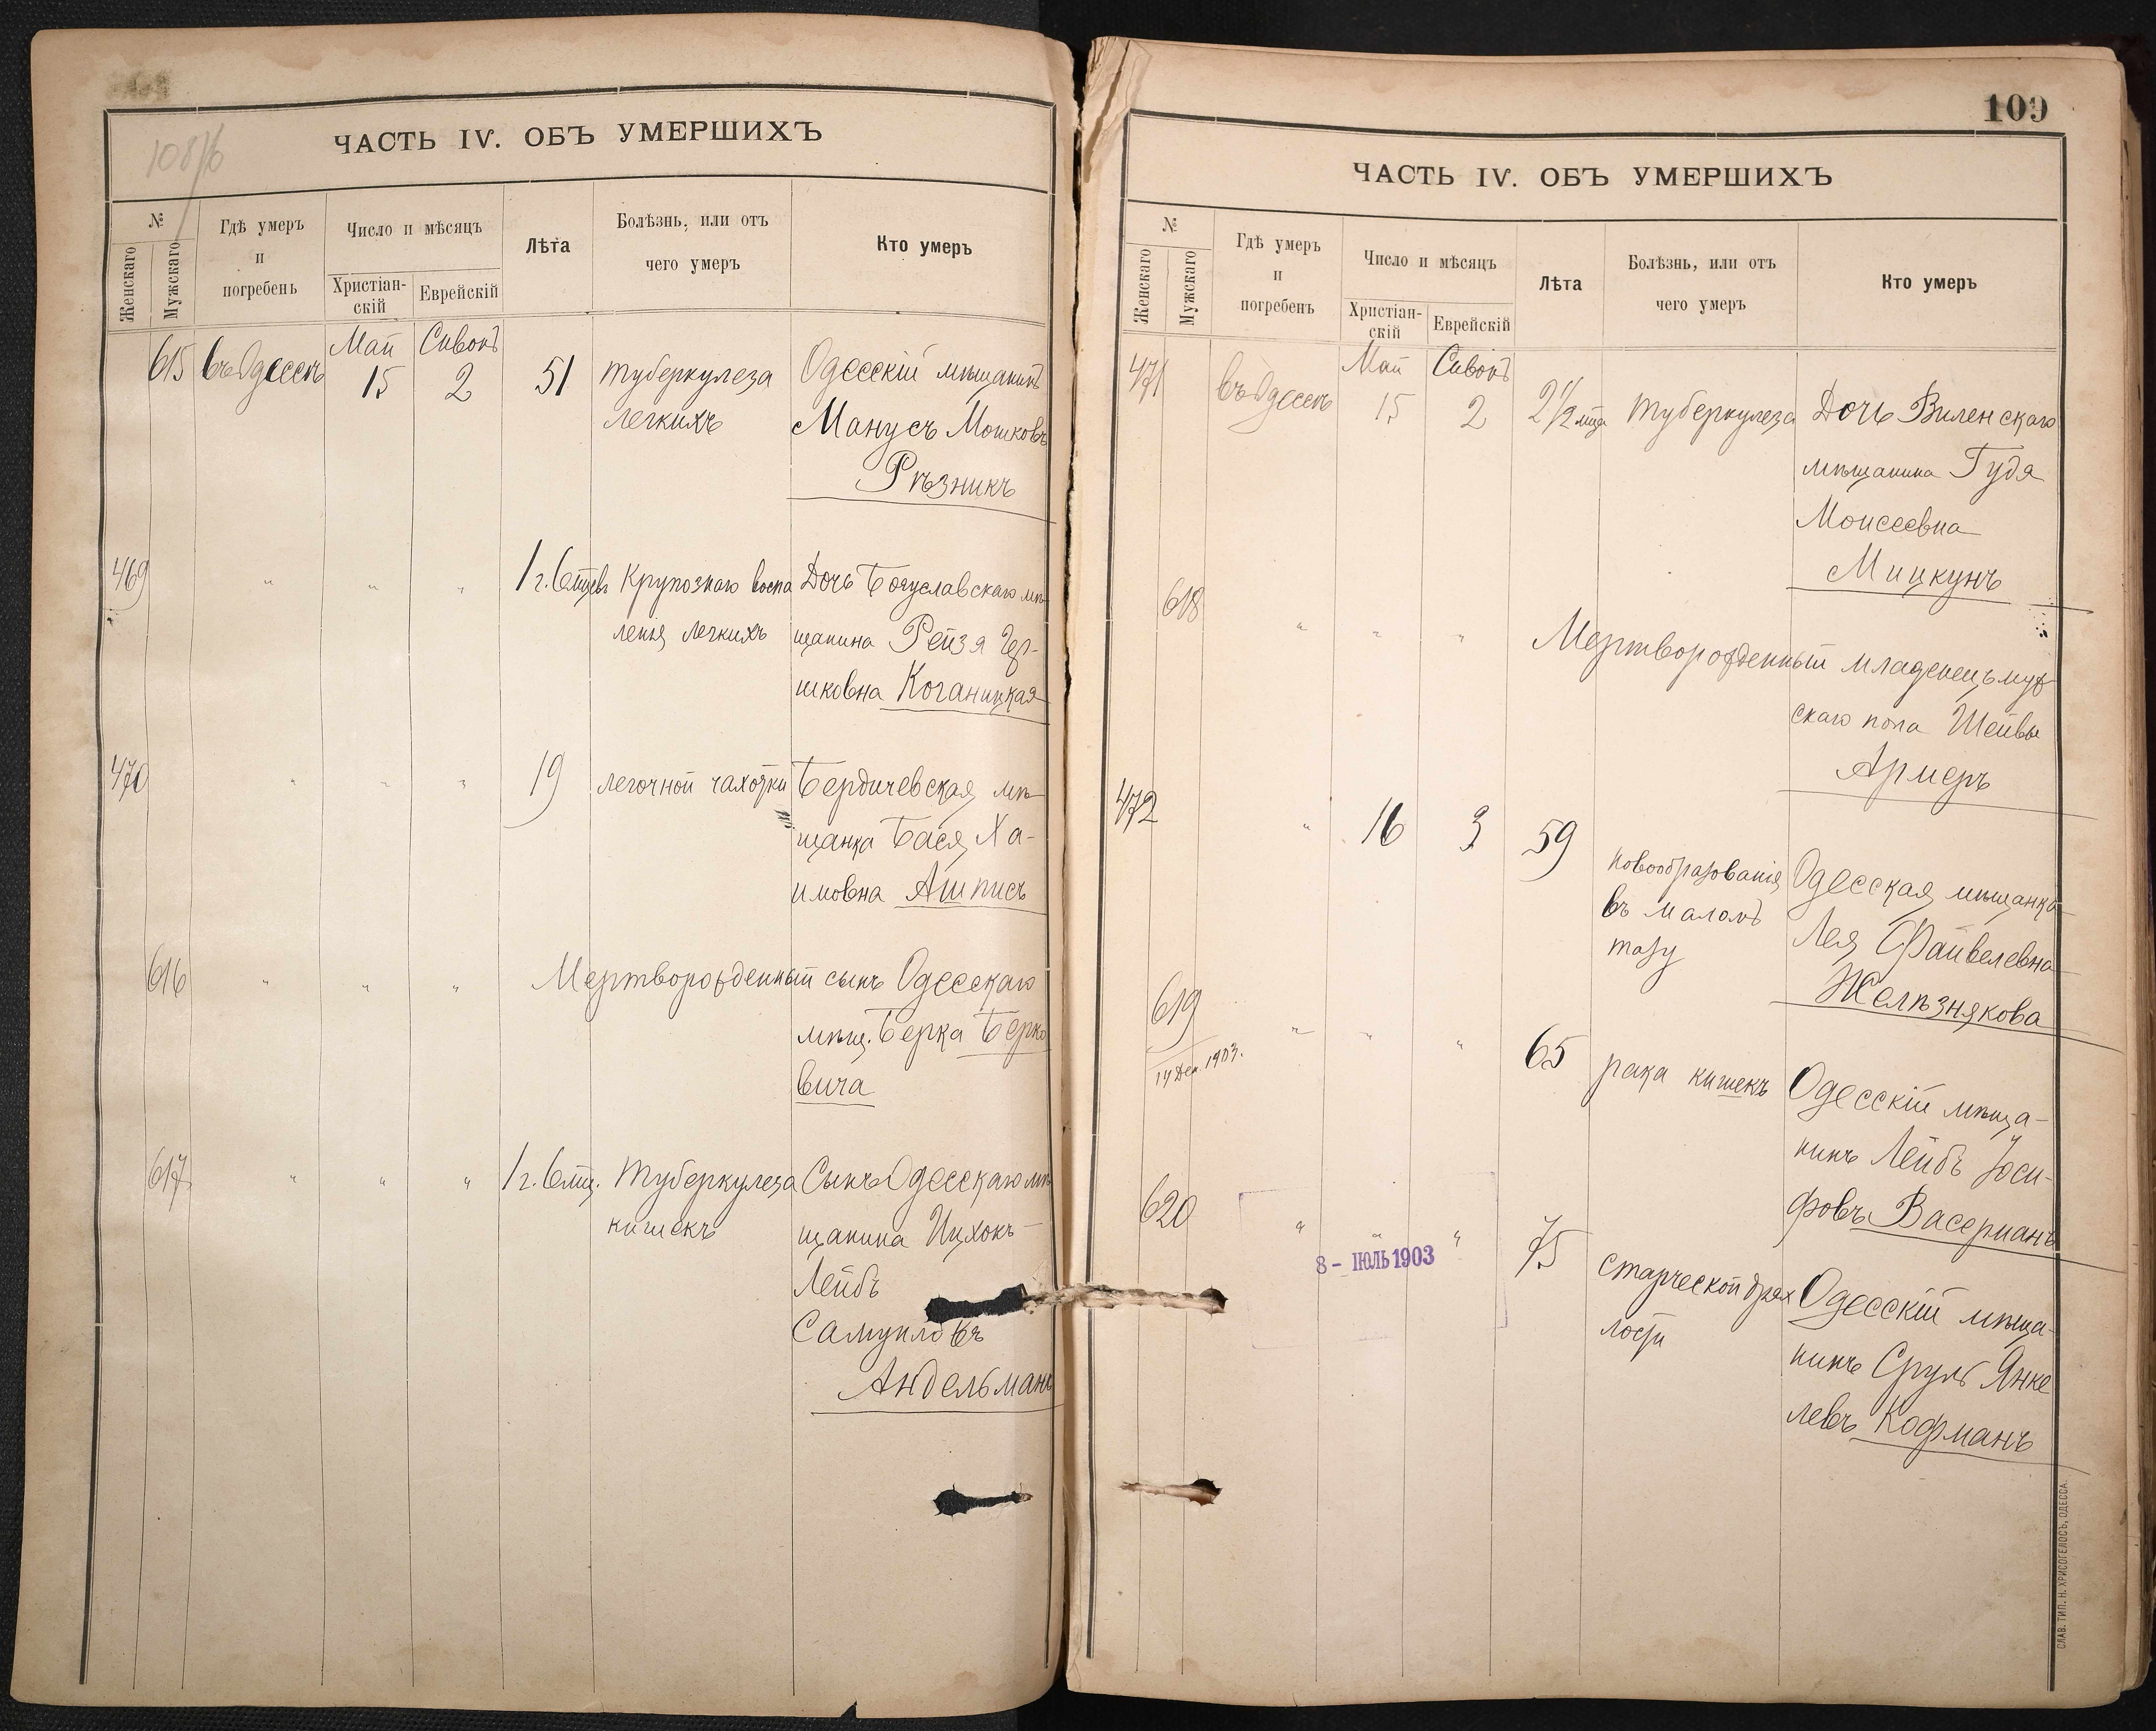 108/б
ЧАСТЬ IV. ОБЪ УМЕРШИХЪ
№
Женскаго
Мужскаго
Гдѣ умеръ
и
погребенъ
Число и мѣсяцъ
Христіан-
скій
Еврейскій
Лѣта
Болѣзнь, или отъ
чего умеръ
Кто умеръ
Май Сивонъ
615 въ Одессѣ 15 2 51 туберкулеза Одесскій мѣщанинъ
легкихъ Манусъ Мошковъ
Рѣзникъ
469 " " " 1 г. 6 мцевъ Крупознаго воспа Дочь Богуславскаго мѣ-
ленія легкихъ щанина Рейзя Гер-
шковна Коганицкая
470 " " " 19 легочной чахотки Бердичевская мѣ-
щанка Бася Ха-
имовна Ашписъ
616 " " " Мертворожденный сынъ Одесскаго
мѣщ. Берка Берко
вича
617 " " " 1 г. 6 мц. туберкулеза Сынъ Одесскаго мѣ
кишекъ щанина Ицхокъ-
Лейбъ
Самуиловъ
Андельманъ
109
ЧАСТЬ IV. ОБЪ УМЕРШИХЪ
№
Женскаго
Мужскаго
Гдѣ умеръ
и
погребенъ
Число и мѣсяцъ
Христіан-
скій
Еврейскій
Лѣта
Болѣзнь, или отъ
чего умеръ
Кто умеръ
Май Сивонъ
471 въ Одессѣ 15 2 2 1/2 мца туберкулеза Дочь Виленскаго
мѣщанина Гудя
Моисеевна
Мицкунъ
618 " " " Мертворожденный младенецъ муж
скаго пола Шейвы
Армеръ
472 " 16 3 59 новообразованія Одесская мѣщанка
въ маломъ Лея Файвелевна
тазу Желѣзнякова
619 " " " 65 рака кишекъ Одесскій мѣща-
14 Дек. 1903.
нинъ Лейбъ Іоси-
фовъ Васерманъ
620 " " " 75 старческой дрях Одесскій мѣща-
8 - ІЮЛЬ 1903
лости нинъ Сруль Янке
левъ Кофманъ
СЛАВ. ТИП. Н. ХРИСОГЕЛОСЪ, ОДЕССА.